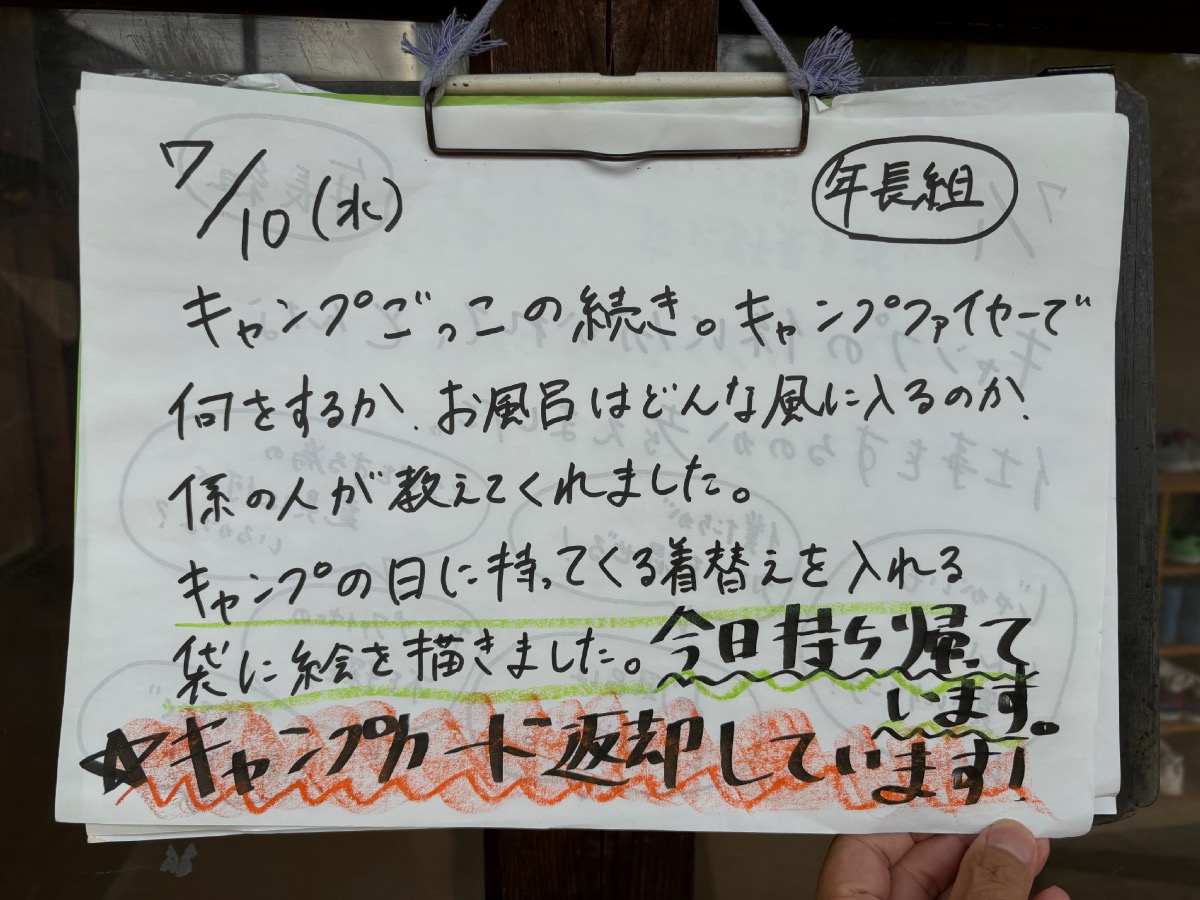 7/10(水)
年長組
キャンプごっこの続き。キャンプファイヤーで
何をするか、お風呂はどんな風に入るのか、
係の人が教えてくれました。
キャンプの日に持ってくる着替えを入れる
袋に絵を描きました。今日持ち帰って
います。
☆キャンプカード返却しています!